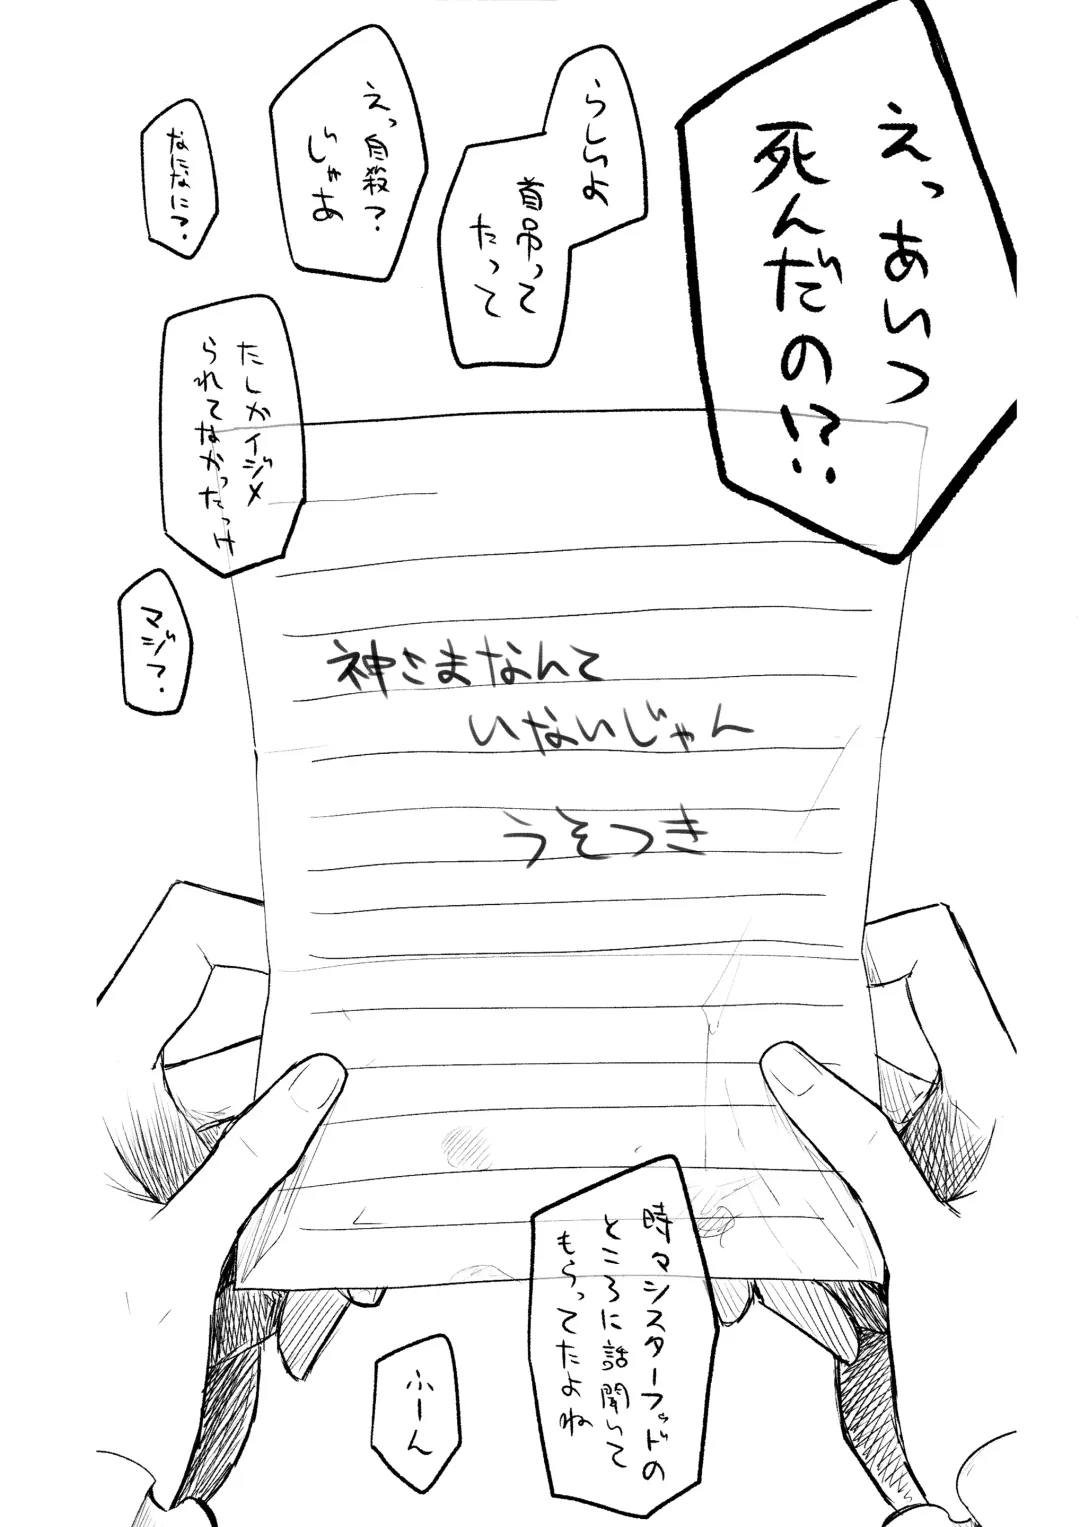 えっあいつ
死んだの!?
らしいよ
首吊って
たって
えっ自殺?
じゃあ
なになに?
たしかイジメ
られてなかったっけ
マジ?
神さまなんて
いないじゃん
うそつき
時々シスターフッドの
ところに話聞いて
もらってたよね
ふーん